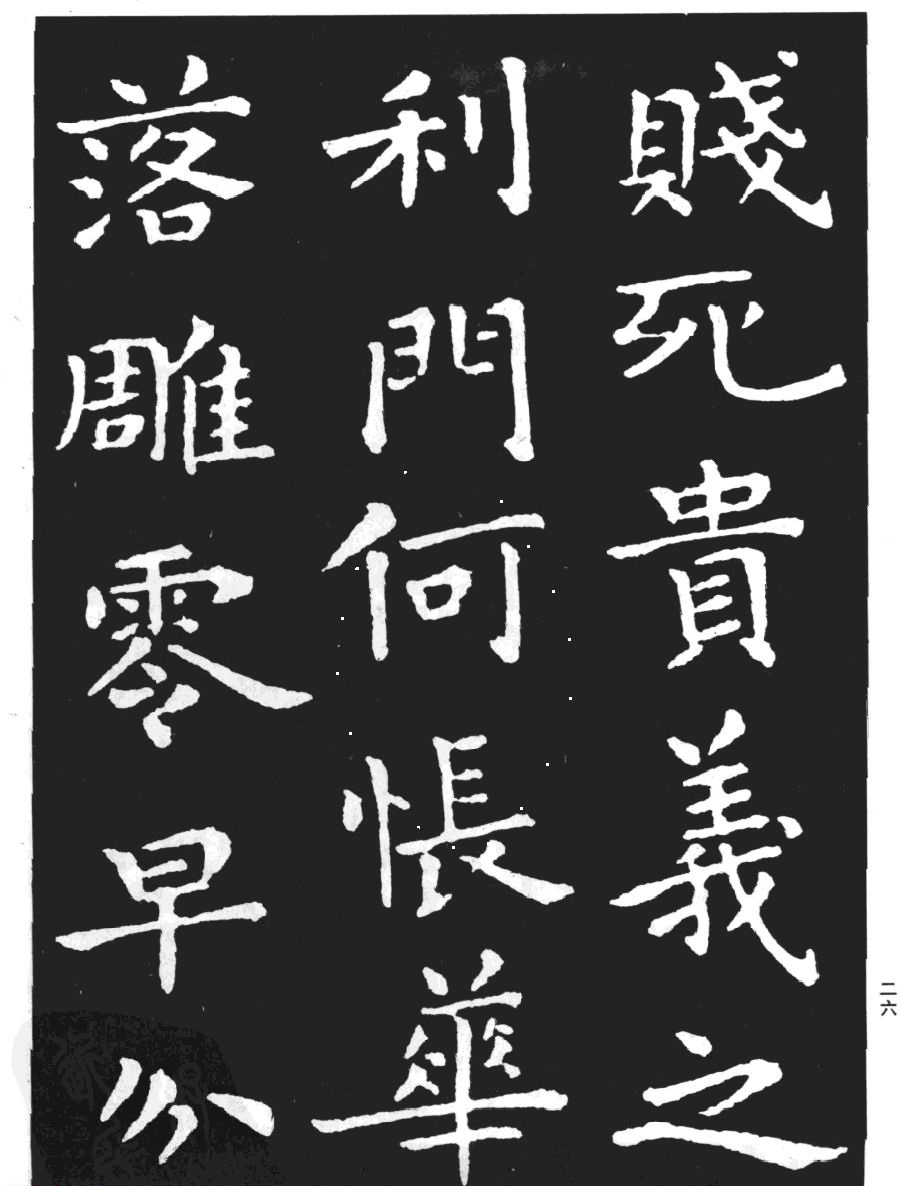 賤死貴義之
利門何悵華
落雕零早分
二六